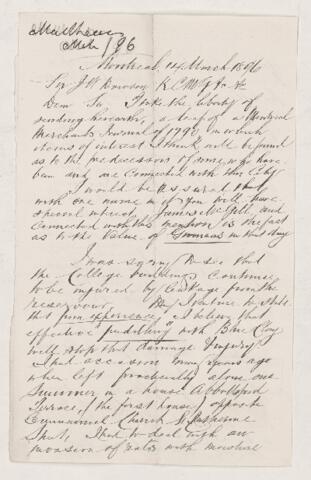 Matthews
Mch /96
Montreal, 14 March 1896
Sir J W Dawson K.C.M.G. &c
Dear Sir, I take the liberty of
sending herewith, a leaf of a Montreal
Merchants Journal of 1798 in which
items of interest I think will be found
as to the predecessors of some who have
been and are connected with this City
I would be assured that
with one name in it you will have
special interest, James McGill, and
connected with this mention is the fact
as to the value of Guineas in that day
I was sorry to see that
the College buildings continue
to be injured by leakage from the
reservoir, may I venture to state
that from experience, I believe that
effective "puddling" with Blue Clay
will stop that damage & injury
I had occasion many years ago
when left practically alone one
Summer in a house Abbotsford
Terrace, (the first house) opposite
Emmanuel Church St Catherine
Street, I had to deal with an
invasion of rats with